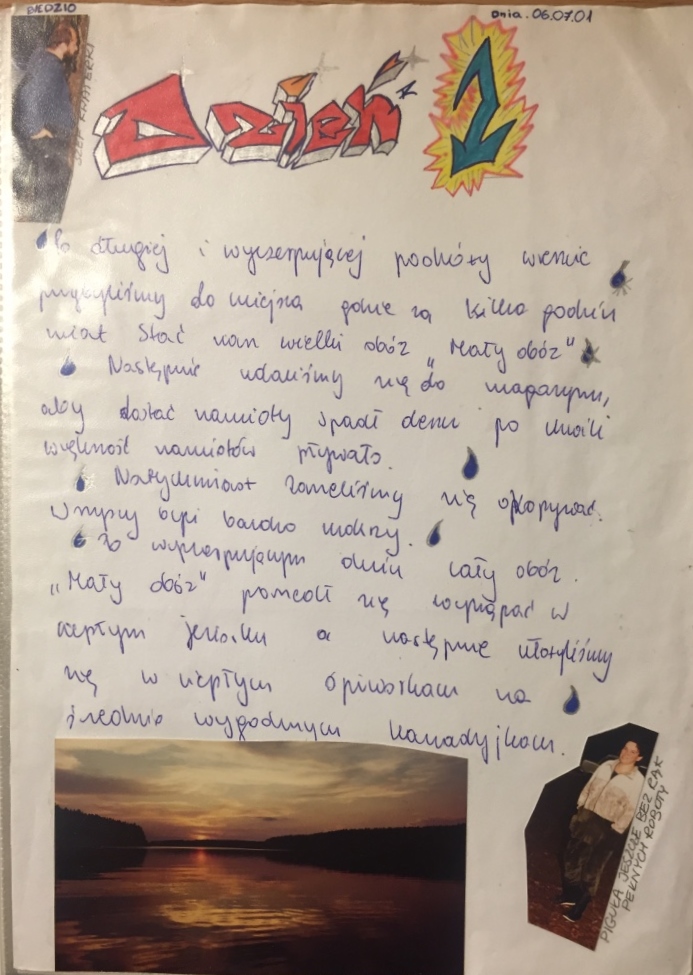 BIEDZIO
dnia. 06.07.01
SZEF KAMERKI
Dzień 1
Po długiej i wyczerpującej podróży wreszcie
przybyliśmy do miejsca gdzie za kilka godzin
miał stać nam wielki obóz „Mały obóz"
Następnie udaliśmy się do magazynu,
aby dostać namioty spadł deszcz po chwili
większość namiotów pływała.
Natychmiast zaczeliśmy się okopywać.
Wszyscy byli bardzo mokrzy.
Po wyczerpującym dniu cały obóz.
„Mały obóz" poszedł się wykąpać w
ciepłym jeziorku a następnie ułożyliśmy
się w ciepłym śpiworkam na
średnio wygodnym kanadyjkam.
PIGUŁA JESZCZE BEZ RĄK
PEŁNYCH ROBOTY